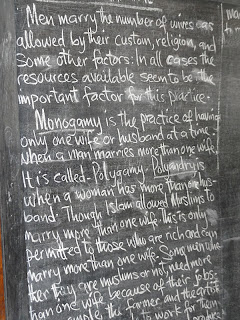 Men marry the number of wives as
allowed by their custom, religion, and
some other factors: In all cases the
resources available seem to be the
important factor for this practice.
Monogamy is the practice of having
only one wife or husband at a time.
When a man marries more than one wife,
it is called Polygamy. Polyandry is
when a woman has more than one hus-
band. Though Islam allowed Muslims to
marry more than one wife. This is only
permitted to those who are rich and can
marry more than one wife. Some men whe-
ther they are muslims or not, need more
than one wife because of their jobs.
example, the farmer and the
to work for them
produce